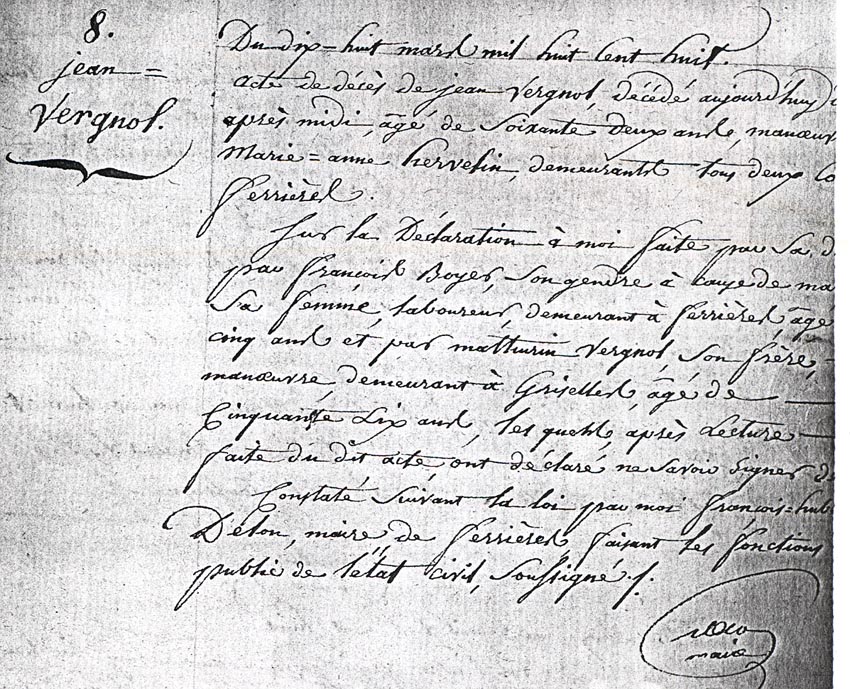 8.
jean =
Vergnol.
Du dix = huit mars mil huit cent huit.
acte de décès de jean Vergnol, décédé aujourd'huy
après midi, âgé de Soixante Deux ans, manœuv
Marie = anne hervelin, demeurants tous deux
ferrières.
Sur la Déclaration à moi faite par Sa
par françois Boyer, Son gendre à cause de ma
Sa femme, laboureur, demeurant à ferrières, âgé
cinq ans et par mathurin Vergnol, Son frère,
manœuvre, demeurant à Griselles, âgé de
Cinquante Six ans, les quels, après Lecture
faite du dit acte, ont déclaré ne Savoir Signer
Constaté Suivant la loi par moi françois = hub
Déton, maire de ferrières, faisant les fonctions
public de l'état civil, Soussigné ./.
maire